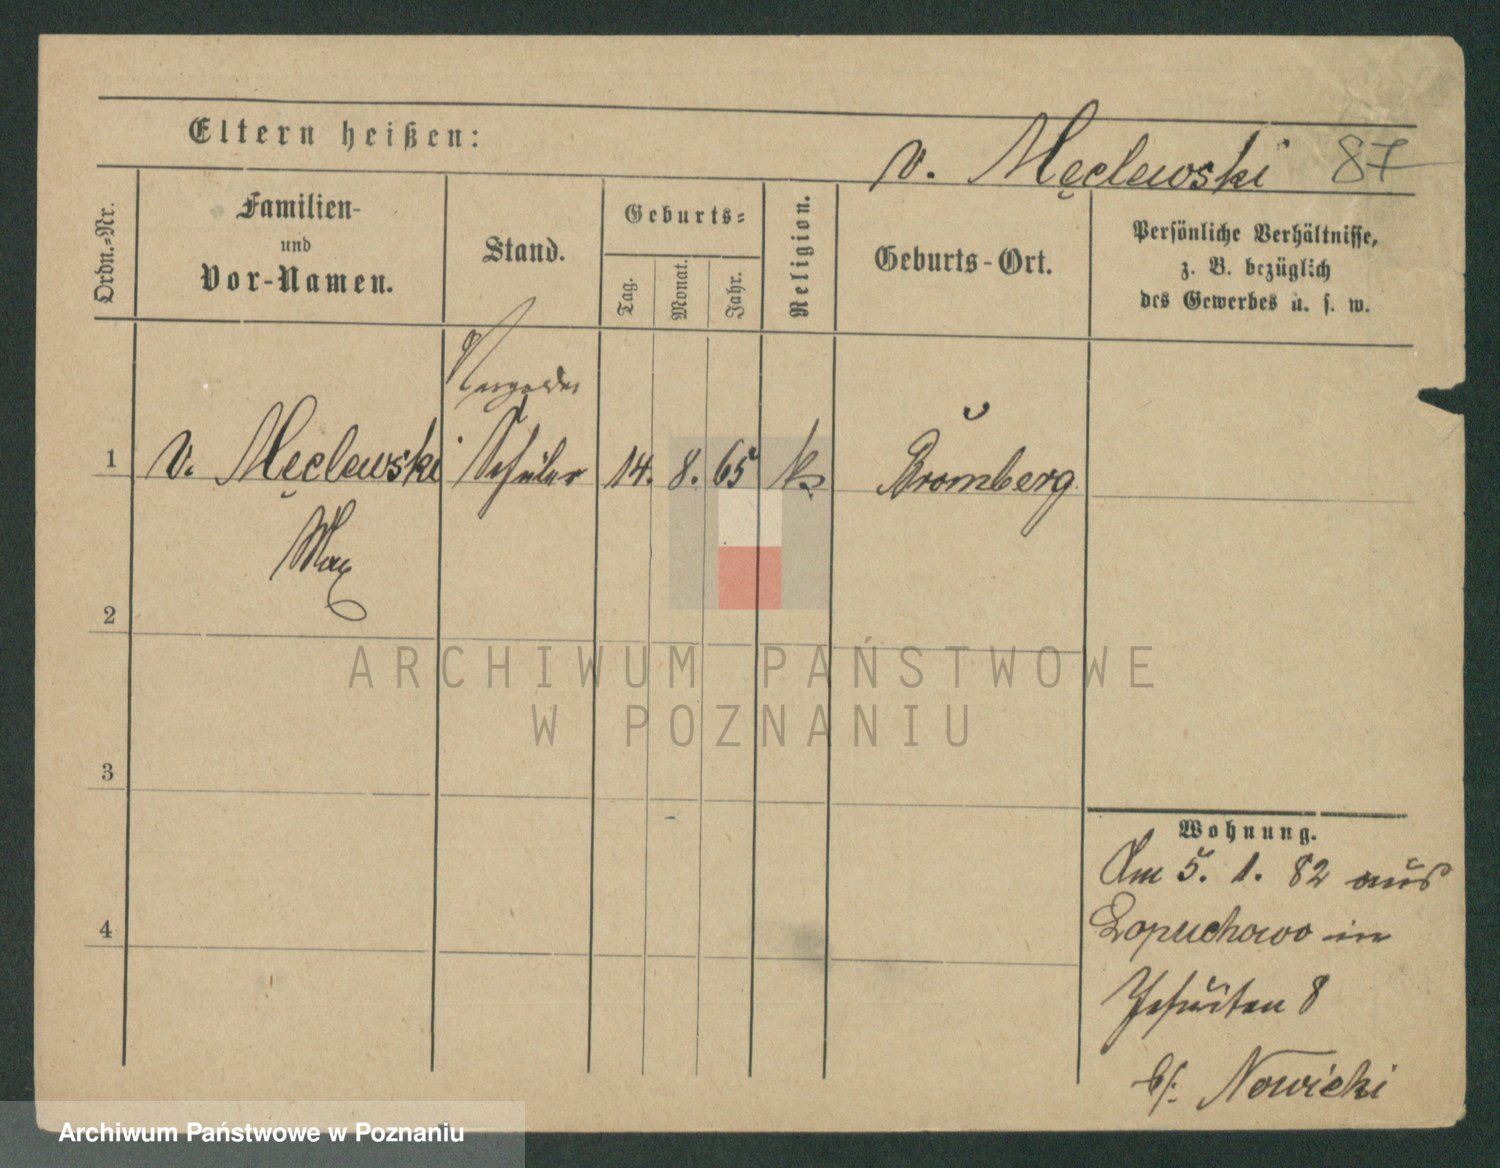 Eltern heißen:
v. Męclewski 87
Ordn.-Nr.
Familien-
und
Vor-Namen.
Stand.
Geburts-
Tag.
Monat.
Jahr.
Religion.
Geburts-Ort.
Persönliche Verhältnisse,
z. B. bezüglich
des Gewerbes u. s. w.
1 v. Męclewski Schüler 14. 8. 65 k. Bromberg
Max
2
3
4
Wohnung.
Am 5. 1. 82 aus
Łopuchowo in
Jesuiten 8
b/: Nowicki
ARCHIWUM PAŃSTWOWE
W POZNANIU
Archiwum Państwowe w Poznaniu